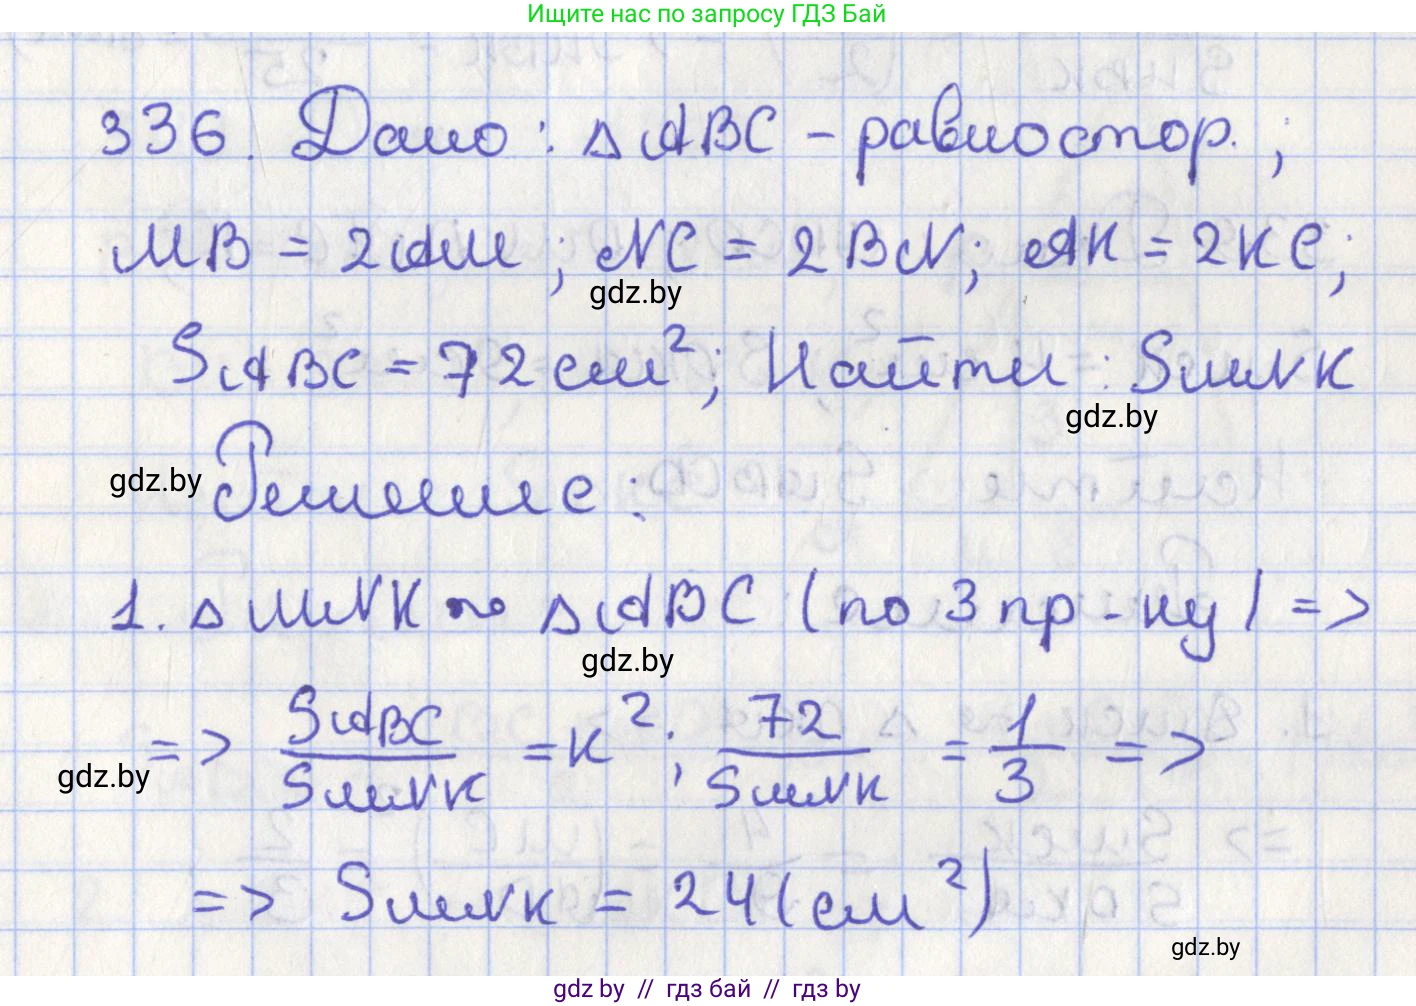 Ищите нас по запросу ГДЗ Бай
336. Дано: △ABC – равностор.;
MB = 2AM; NC = 2BN; AK = 2KC;
gdz.by
SABC = 72 см²; Найти: SMNK
gdz.by
gdz.by Решение:
1. △MNK ∾ △ABC (по 3 пр-ку) =>
gdz.by
=> SABC/SMNK = K²; 72/SMNK = 1/3 =>
gdz.by
=> SMNK = 24 (см²)
gdz.by
gdz by // гдз бай // гдз by